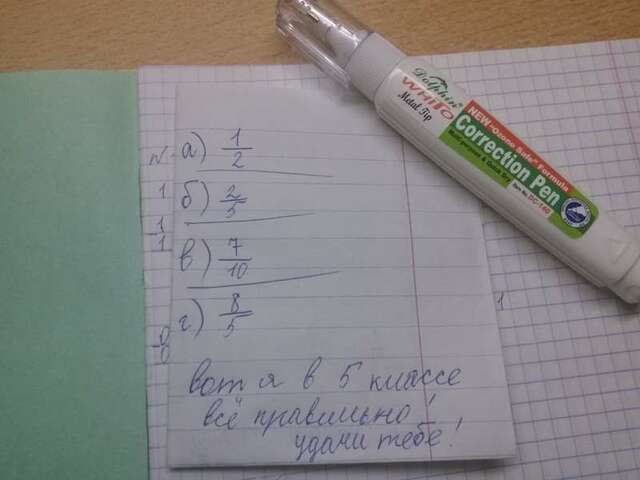 а) 1/2
б) 2/5
в) 7/10
г) 8/5
вот я в 5 классе
всё правильно!
удачи тебе!
Dolphin
WHITO
Metal Tip
NEW "Ozone Safe" Formula
Correction Pen
Multi-purpose & Quick Dry
1
1
1
0
0
1